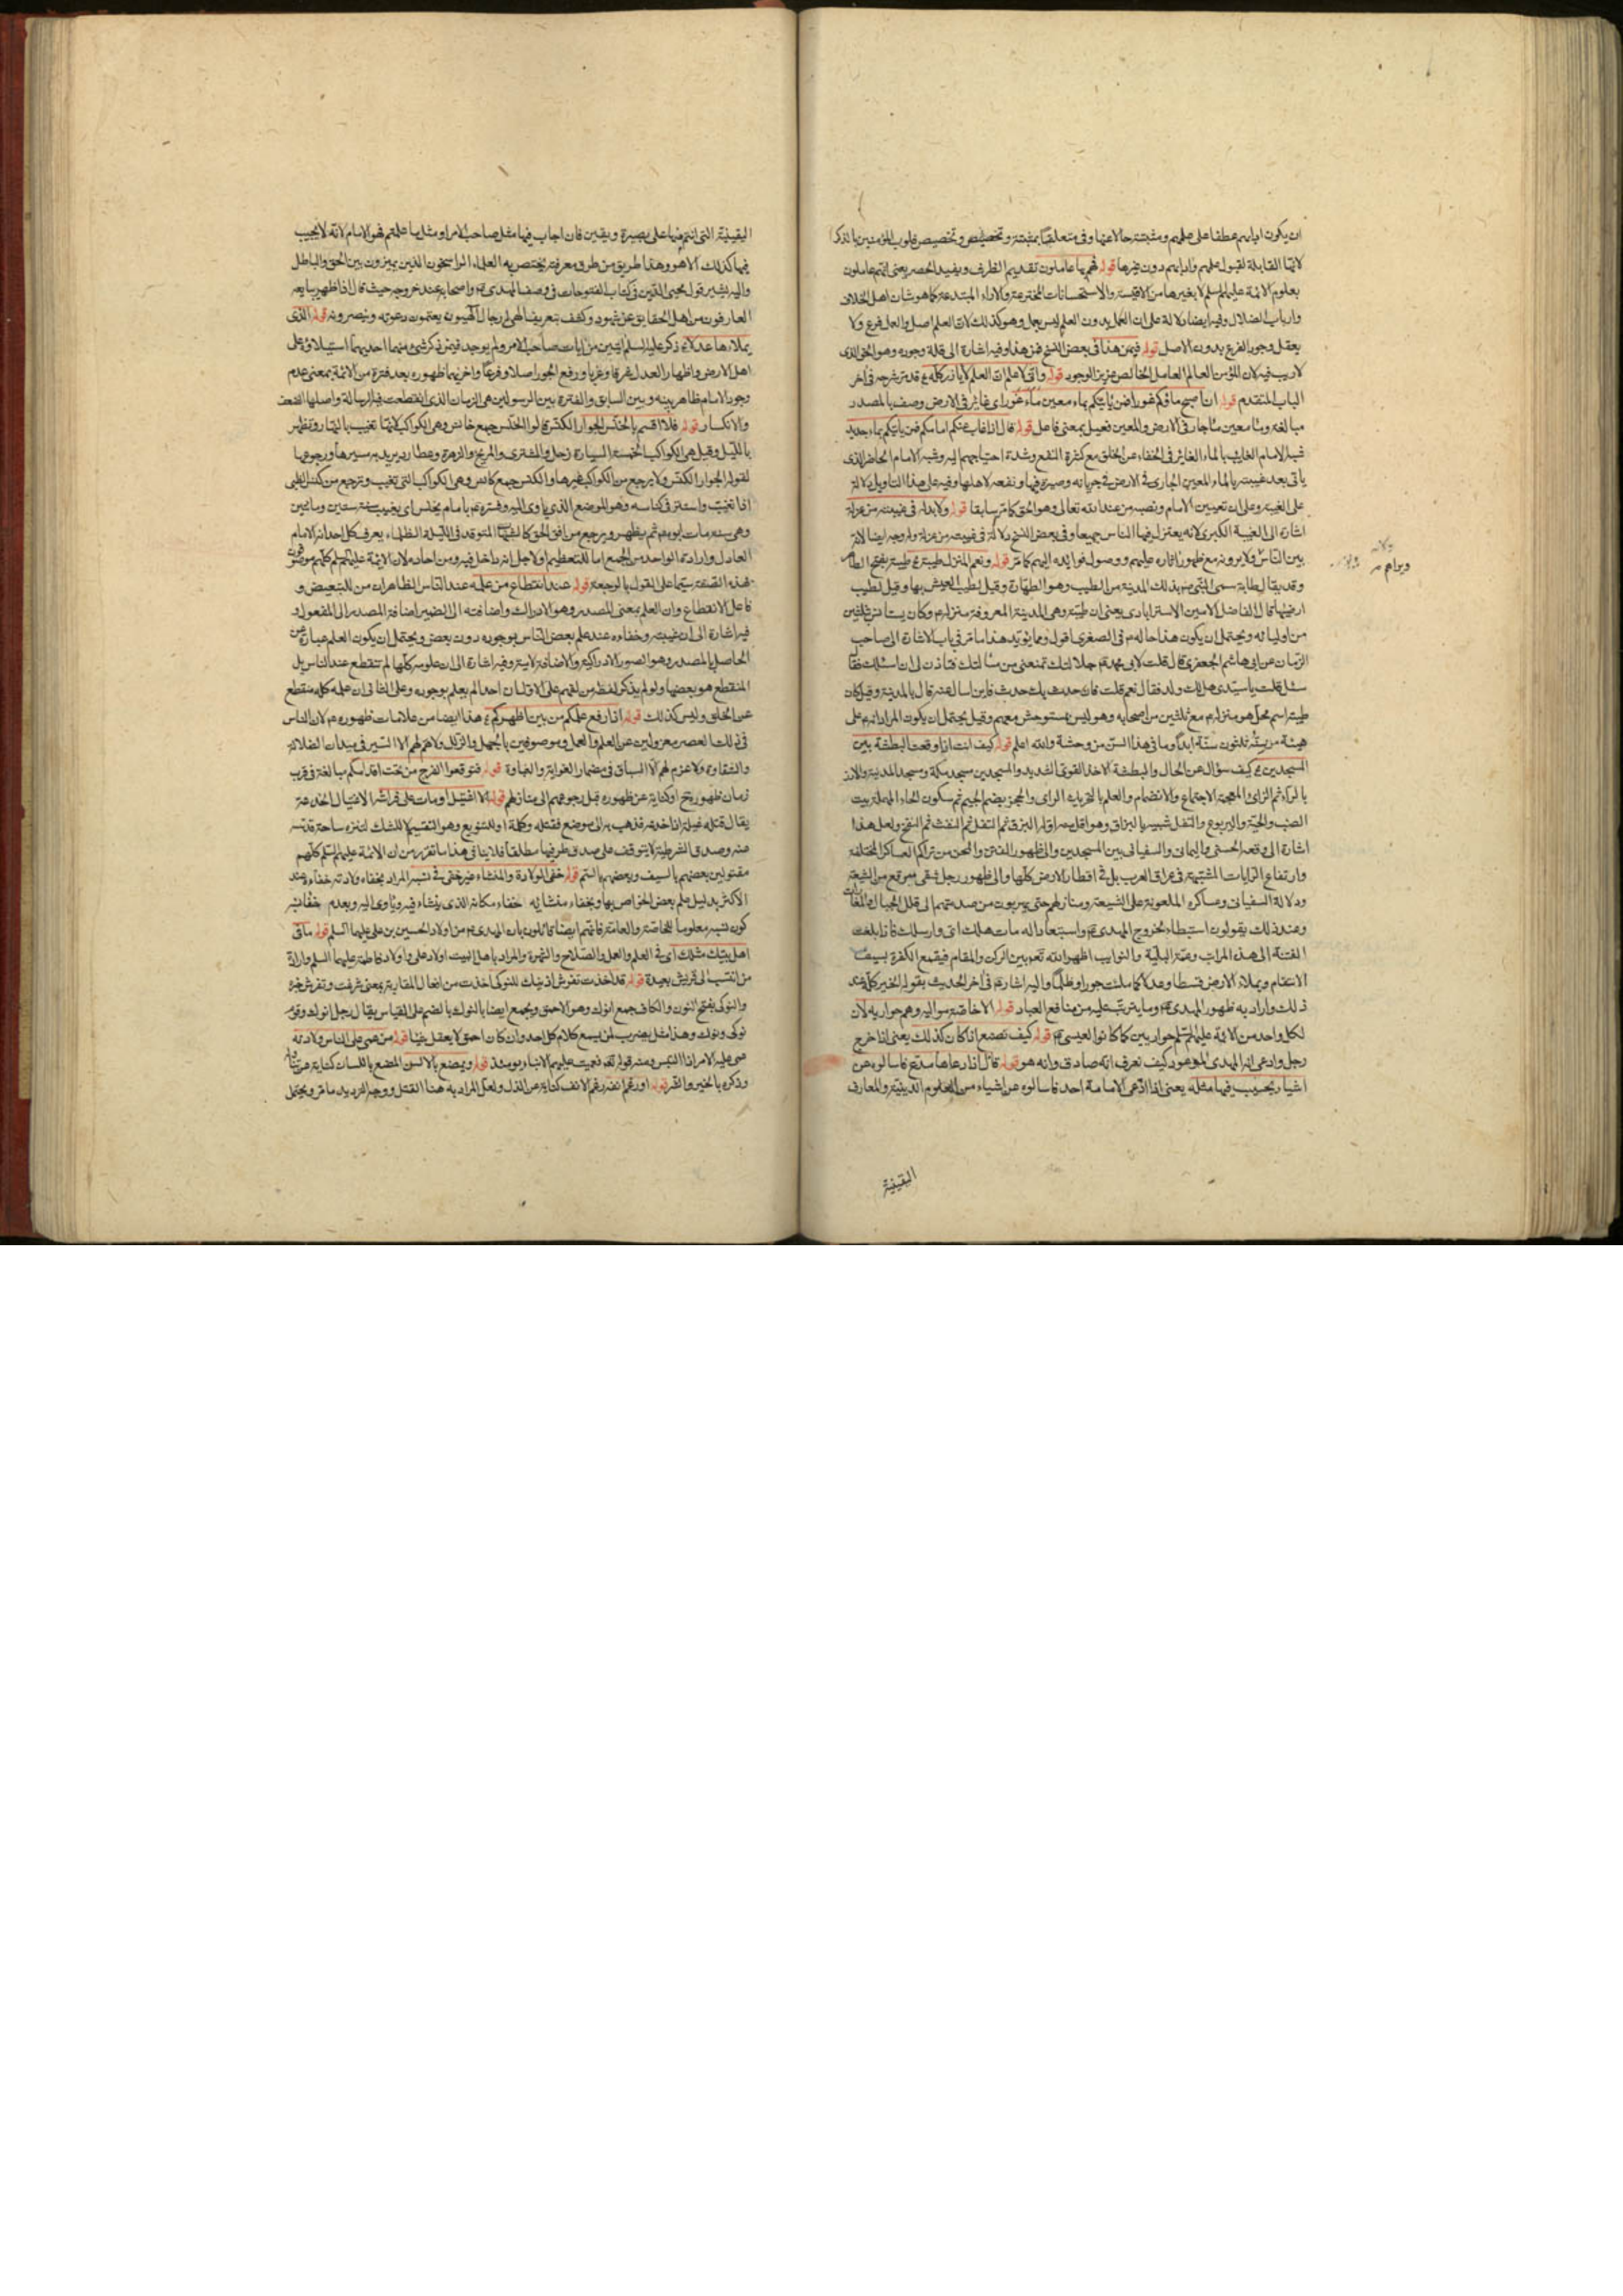 ان يكون ادابهم عطفا على علمهم ومثبتة حالا عنها وفى متعلقا بمثبتة وتخصيص قلوب المؤمنين بالذكر
لانها القابلة لقبول علمهم وادابهم دون غيرها قوله فهم بها عاملون تقديم الظرف ويفيد الحصر يعنى انهم عاملون
بعلوم الائمة عليهم السلم لا بغيرها من الاقيسة والاستحسانات المخترعة والاراء المبتدعة كما هو شان اهل الخلاف
وارباب الضلال وفيه ايضا دلالة على ان العمل بدون العلم ليس بعمل وهو كذلك لان العلم اصل والعمل فرع ولا
يعقل وجود الفرع بدون الاصل قوله فيمن هذا فى بعض النسخ فمن هذا وفيه اشارة الى قلة وجوده وهو الحق الذى
لا ريب فيه لان المؤمن العالم العامل الخالص عزيز الوجود قوله وانى لاعلم ان العلم لا يأذر كله قد مر شرحه فى اخر
الباب المتقدم قوله ان اصبح ماؤكم غورا فمن يأتيكم بماء معين ماء غور اى غاير فى الارض وصف بالمصدر
مبالغة وماء معين ماء جار فى الارض والمعين فعيل بمعنى فاعل قوله قال اذا غاب عنكم امامكم فمن يأتيكم بماء جديد
شبه الامام الغايب بالماء الغاير فى الخفاء عن الخلق مع كثرة النفع وشدة احتياجهم اليه وشبه الامام الحاضر الذى
يأتى بعد غيبته بالماء المعين الجارى فى الارض فى جريانه وصيرة فيها ونفعه لاهلها وفيه على هذا التاويل دلالة
على الغيبة وعلى ان تعيين الامام ونصبه من عند الله تعالى وهو الحق كما مر سابقا قوله ولا بد له فى غيبته من عزلة
اشارة الى الغيبة الكبرى لانه يعتزل فيها الناس جميعا وفى بعض النسخ ولا له فى غيبته من عزلة وله وجه ايضا لانه
بين الناس ولا يرونه مع ظهور اثاره عليهم ووصول فوائده اليهم كما مر قوله ونعم المنزل طيبة طيبة بفتح الطاء
وقد يقال لطابة سمى النبى ص بذلك المدينة من الطيب وهو الطهارة وقيل لطيب العيش بها وقيل لطيب
ارضها قال الفاضل الامين الاسترابادى يعنى ان طيبة وهى المدينة المعروفة منزله ع وكان يستانس بثلثين
من اوليائه ويحتمل ان يكون هذا حاله ع فى الصغرى اقول ومما يؤيد هذا ما مر فى باب الاشارة الى صاحب
الزمان عن ابى هاشم الجعفرى قال قلت لابى محمد ع جلالتك تمنعنى من مسألتك فتاذن لى ان اسئلك فقال
سل قلت يا سيدى هل لك ولد فقال نعم قلت فان حدث بك حدث فاين اسال عنه قال بالمدينة وقيل كان
طيبة اسم محل هو منزله ع مع ثلثين من اصحابه وهو ليس بمستوحش معهم وقيل يحتمل ان يكون المراد انه ع على
هيئة من سنه ثلثون سنة ابدا وما فى هذا السن من وحشة والله اعلم قوله كيف انت اذا وقعت البطشة بين
المسجدين كيف سؤال عن الحال والبطشة الاخذ القوى الشديد والمسجدين مسجد مكة ومسجد المدينة والارز
بالراء ثم الزاى المعجمة الاجتماع والانضمام والعلم بالتحريك الراى والجحر بضم الجيم ثم سكون الحاء المهملة بيت
الضب والحية واليربوع والتفل شبيه بالبزاق وهو اقل منه اوله البزق ثم التفل ثم النفث ثم النفخ ولعل هذا
اشارة الى وقعة الحسنى واليمانى والسفيانى بين المسجدين والى ظهور الفتن والمحن من تراكم العساكر المختلفة
وارتفاع الرايات المشتبهة فى عراق العرب بل فى اقطار الارض كلها والى ظهور رجل شقى
ودلالة السفيانى وعساكره الملعونة على الشيعة ومنازلهم حتى يهربون من صدمتهم الى قلل الجبال والمغارات
وعند ذلك يقولون استبطاء لخروج المهدى ع واستبعادا له مات هلك انى واد سلك فاذا بلغت
الفتنة الى هذه المراتب وعمت البلية والنوايب اظهر الله تعالى بين الركن والمقام فيقمع الكفرة بسيف
الانتقام ويملاء الارض قسطا وعدلا كما ملئت جورا وظلما واليه اشار ع فى اخر الحديث بقوله الخير كله عند
ذلك واراد به ظهور المهدى ع وما يترتب عليه من منافع العباد قوله الا خاصة مواليه وهم حواريه لان
لكل واحد من الائمة عليهم السلم حواريين كما كانوا لعيسى ع قوله كيف نصنع اذا كان كذلك يعنى اذا خرج
رجل وادعى انه المهدى الموعود كيف نعرف انه صادق وانه هو قوله قال اذا ادعاها مدع فاسالوه عن
اشياء يجيب فيها مثله يعنى اذا ادعى الامامة احد فاسالوه عن اشياء من العلوم الدينية والمعارف
اليقينية
اليقينية التى انتم فيها على بصيرة ويقين فان اجاب فيها مثل صاحب الامر او مثل ما علمتم فهو الامام لانه لا يجيب
فيها كذلك الا هو وهذا طريق من طرق معرفته يختص به العلماء الراسخون الذين يميزون بين الحق والباطل
واليه يشير قول محيى الدين فى كتاب الفتوحات فى وصف المهدى ع واصحابه عند خروجه حيث قال اذا ظهر يبايعه
العارفون من اهل الحقايق عن شهود وكشف بتعريف الهى له رجال الهيون يقيمون دعوته وينصرونه قوله الذى
يملأها عدلا ذكر عليه السلم ايتين من ايات صاحب الامر ولم يوجد فيمن ذكر شىء منهما احديهما استيلاؤه على
اهل الارض واظهار العدل شرقا وغربا ورفع الجور اصلا وفرعا واخريهما ظهوره بعد فترة من الائمة بمعنى عدم
وجود الامام ظاهر بينه وبين السابق والفترة بين الرسولين هى الزمان الذى انقطعت فيه الرسالة واصلها الضعف
والانكسار قوله فلا اقسم بالخنس الجوار الكنس قالوا الخنس جمع خانس وهى الكواكب لانها تغيب بالنهار وتظهر
بالليل وقيل هى الكواكب الخمسة السيارة زحل والمشترى والمريخ والزهرة وعطارد يريد به سيرها ورجوعها
لقوله الجوار الكنس ولا يرجع من الكواكب غيرها والكنس جمع كانس وهى الكواكب التى تغيب وترجع من كنس الظبى
اذا تغيب واستتر فى كناسه وهو الموضع الذى ياوى اليه وفسره ع بامام يخنس اى يغيب سنة ستين ومائتين
وهى سنة مات ابوه ع ثم يظهر ويرجع من افق الحق كالشهاب المتوقد فى الليلة الظلماء يعرف كل احد انه الامام
العادل وارادته الواحد من الجمع اما للتعظيم او لاجل انه داخل فيه ومن احاده لان الائمة عليهم السلم كلهم موصوفون
بهذه الصفة سيما على القول بالرجعة قوله عند انقطاع من علمه عند الناس الظاهر ان من للتبعيض و
فاعل الانقطاع وان العلم بمعنى المصدر وهو الادراك واضافته الى الضمير اضافة المصدر الى المفعول و
فيه اشارة الى ان غيبته وخفاءه عند علم بعض الناس بوجوده دون بعض ويحتمل ان يكون العلم عبارة عن
الحاصل بالمصدر وهو الصور الادراكية والاضافة لامية وفيه اشارة الى ان علومه كلها لم تنقطع عند الناس بل
المنقطع هو بعضها ولو لم يذكر لفظ من لفهم على الاول ان احدا لم يعلم بوجوده وعلى الثانى ان علمه كله منقطع
عن الخلق وليس كذلك قوله اذا رفع علمكم من بين اظهركم هذا ايضا من علامات ظهوره ع لان الناس
فى ذلك العصر معزولين عن العلم والعمل وموصوفين بالجهل والزلل ولا هم لهم الا السير فى ميدان الضلالة
والشقاوة ولا عزم لهم الا السباق فى مضمار الغواية والغباوة قوله فتوقعوا الفرج من تحت اقدامكم مبالغة فى قرب
زمان ظهوره ع او كناية عن ظهوره قبل رجوعهم الى منازلهم قوله الا اغتيل او مات على فراشه الاغتيال الخدعة
يقال قتله غيلة اذا خدعه فذهب به الى موضع فقتله وكلمة او للتنويع وهو التقسيم لا للشك لتنزه ساحة قدسه
عنه وصدق الشرطية لا يتوقف على صدق طرفيها مطلقا فلا ينافى هذا ما تقرر من ان الائمة عليهم السلم كلهم
مقتولين بعضهم بالسيف وبعضهم بالسم قوله خفى الولادة والمنشاء غير خفى فى نسبه المراد بخفاء ولادته خفاءه عند
الاكثر بدليل علم بعض الخواص بها وبخفاء منشائه خفاء مكانه الذى ينشاء فيه وياوى اليه وبعدم خفاء نسبه
كون نسبه معلوما للخاصة والعامة فانهم ايضا قائلون بان المهدى ع من اولاد الحسين بن على عليهما السلم قوله ما فى
اهل بيتك مثلك اى فى العلم والعمل والصلاح والشهرة والمراد باهل البيت اولاد على ع واولاد فاطمة عليهما السلم وارادة
من انتسب الى قريش بعيدة قوله قد اخذت تفرش اذنيك للنوكى اخذت من افعال المقاربة بمعنى شرعت وتفرش خبره
والنوكى بفتح النون والكاف جمع انوك وهو الاحمق ويجمع ايضا بالنوك بالضم على القياس يقال رجل انوك وقوم
نوكى ونوك وهذا مثل يضرب لمن يسمع كلام كل احد وان كان احمق لا يعقل شيئا قوله من عمى على الناس ولادته
عمى عليه الامر اذا التبس ومنه قوله تعالى فعميت عليهم الانباء يومئذ قوله ويمضغ بالالسن المضغ باللسان كناية عن تناوله
وذكره بالخير والشر قوله او رغم انفه رغم الانف كناية عن الذل ولعل المراد به هنا القتل ووجه الترديد ما مر ويحتمل